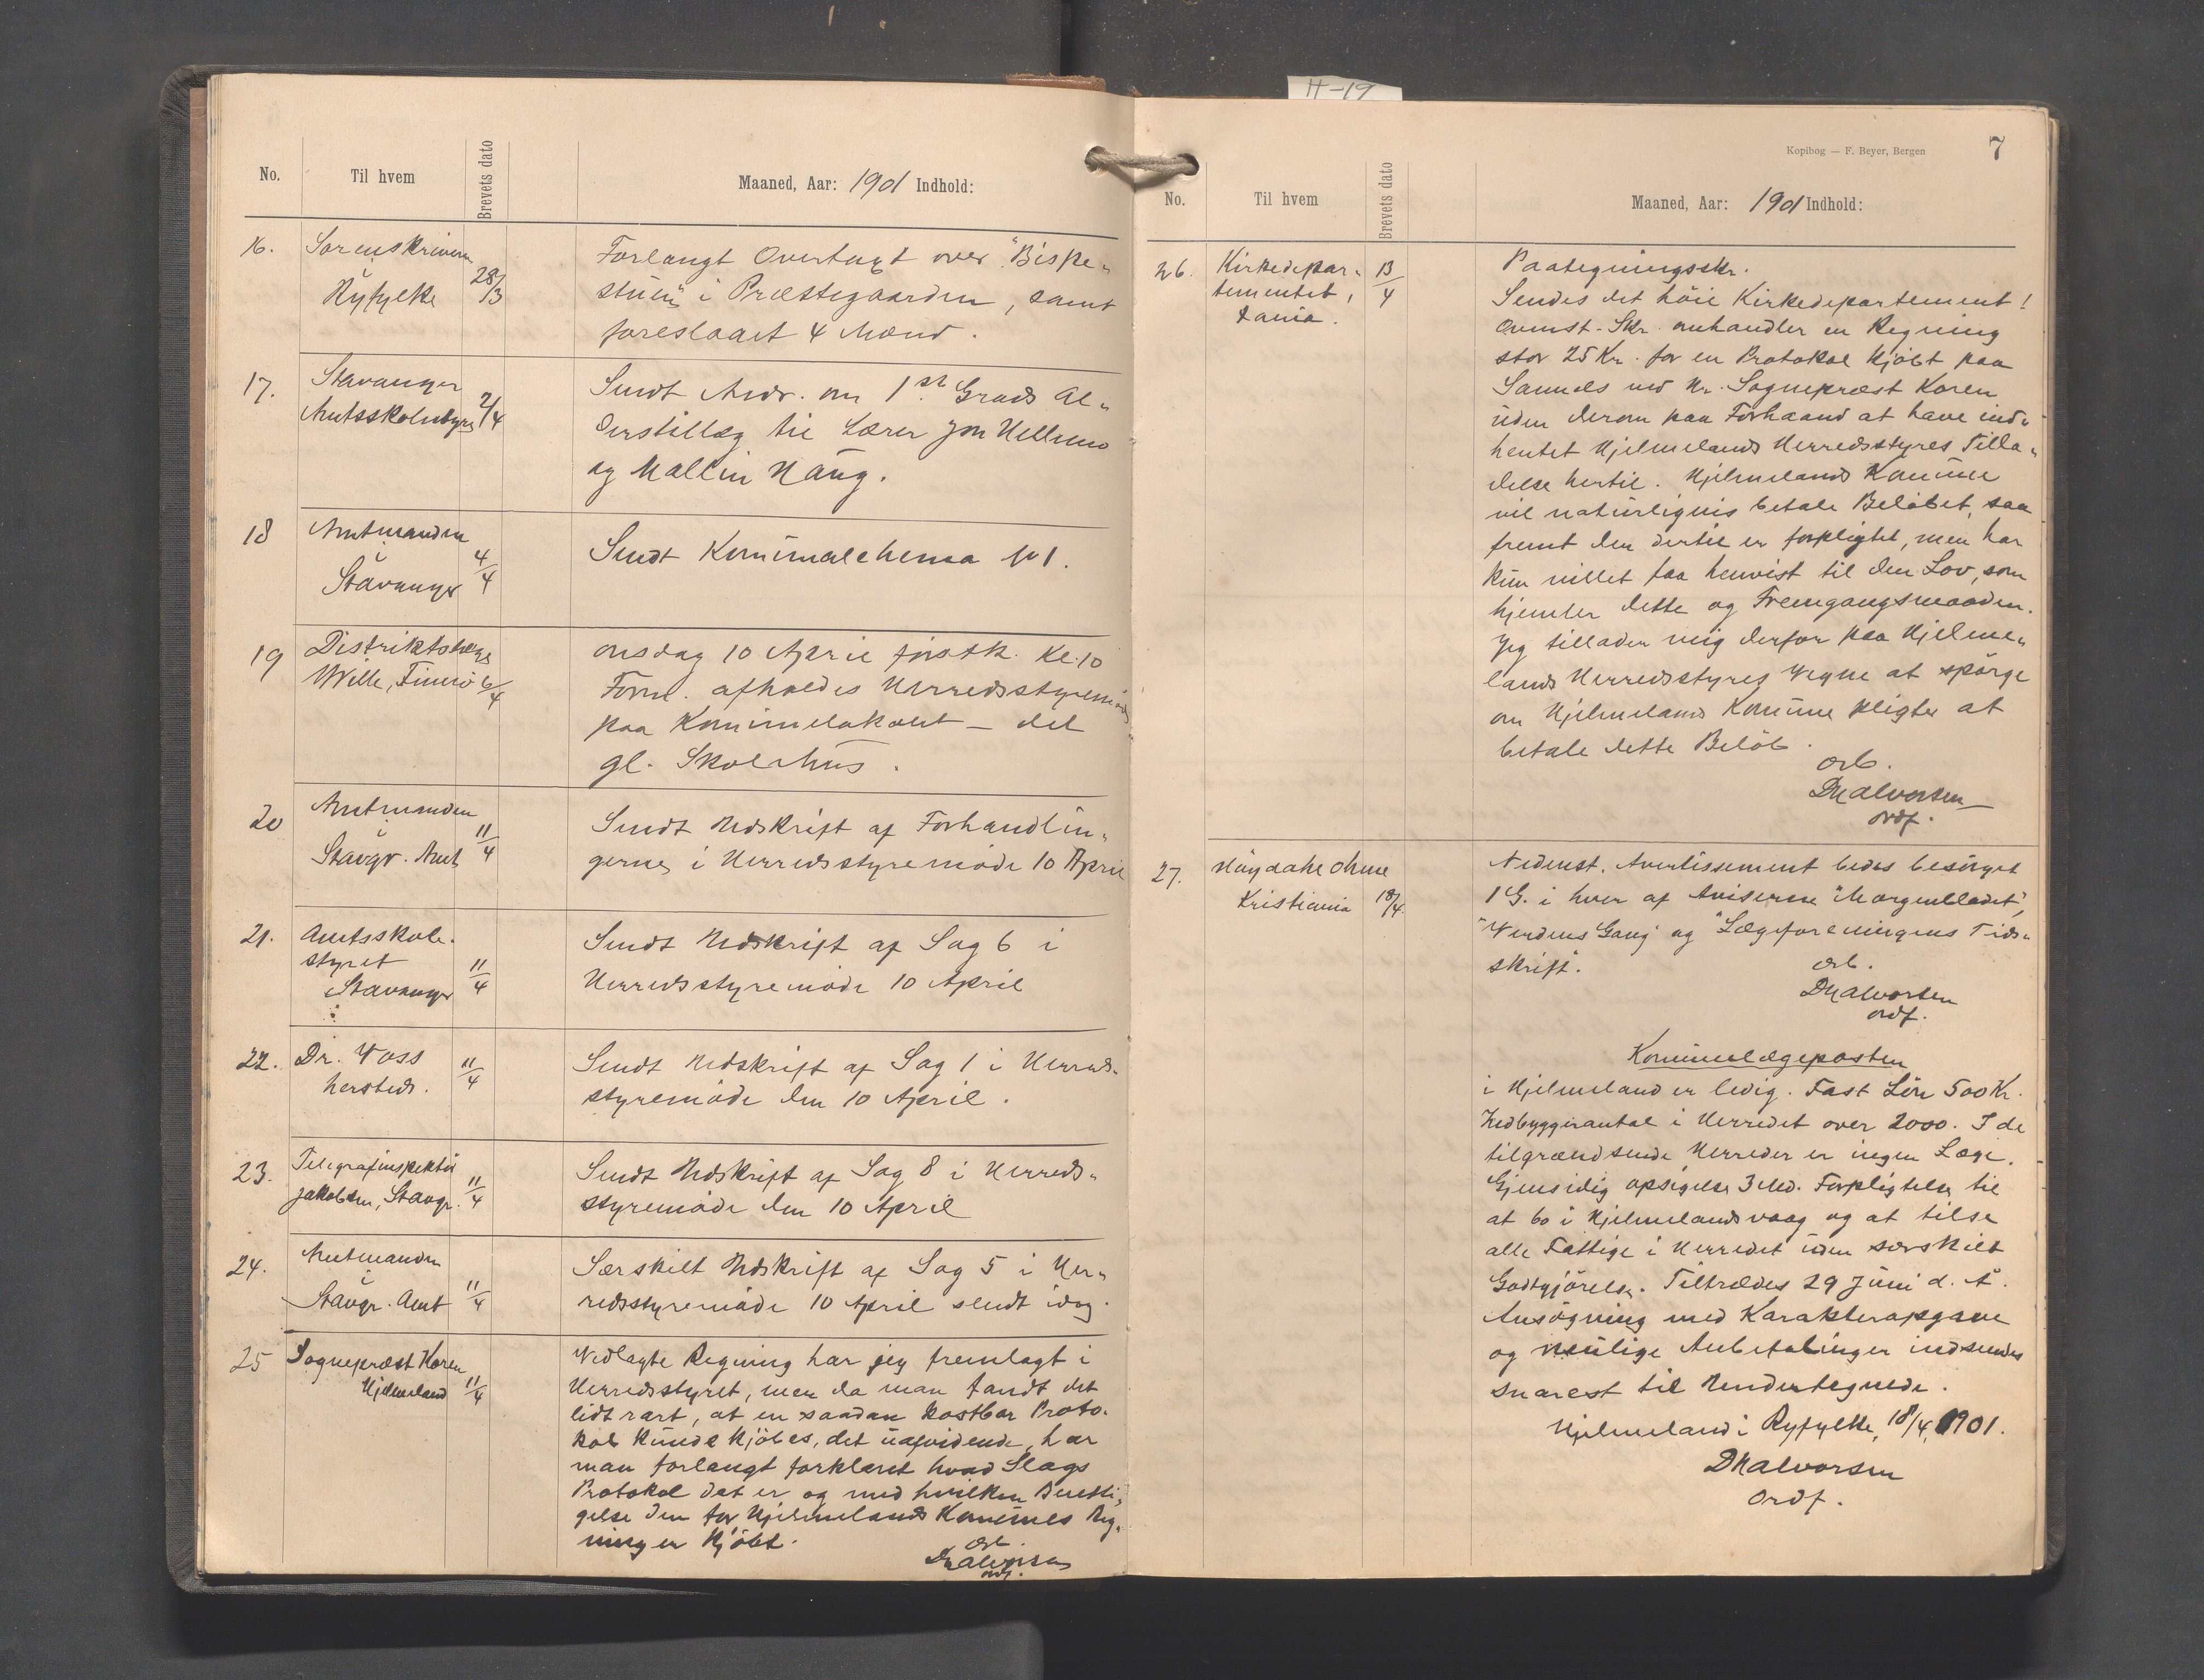 H-19
No. Til hvem Brevets dato Maaned, Aar: 1901 Indhold:
16. Sorenskriveren
Ryfylke 28/3
Forlangt Overtagt over "Bispe-
stuen" i Præstegaarden, samt
foreslaaet 4 Mænd.
17. Stavanger
Amtsskolestyre 2/4
Sendt Andr. om 1ste Grads Al-
derstillæg til Lærer Jon Hellemo
og Mallin Haug.
18 Amtmanden
Stavanger 4/4
Sendt Komunalchema No 1.
19 Distriktslæge
Wille, Finnø 6/4
Onsdag 10 April førstk. Kl. 10
Form. afholdes Herredsstyremøde
paa Komunelokalet — det
gl. Skolehus.
20 Amtmanden
Stavgr. Amt 11/4
Sendt Udskrift af Forhandlin-
gerne i Herredsstyremøde 10 April
21. Amtsskole-
styret
Stavanger 11/4
Sendt Udskrift af Sag 6 i
Herredsstyremøde 10 April
22. Dr. Voss
hersteds. 11/4
Sendt Udskrift af Sag 1 i Herreds-
styremøde den 10 April.
23. Telegrafinspektør
Jakobsen, Stavgr. 11/4
Sendt Udskrift af Sag 8 i Herreds-
styremøde den 10 April
24. Amtmanden
Stavgr. Amt 11/4
Særskilt Udskrift af Sag 5 i Her-
redsstyremøde 10 April sendt idag.
25 Sognepræst Koren
Hjelmeland 11/4
Vedlagte Regning har jeg fremlagt i
Herredsstyret, men da man fandt det
lidt rart, at en saadan kostbar Proto-
kol kunde kjøbes, det uafvidende, har
man forlangt forklaret hvad Slags
Protokol det er og med hvilken Beretti-
gelse den for Hjelmelands Komunes Reg-
ning er kjøbt.
Erb.
DHalvorsen
ordf.
Kopibog — F. Beyer, Bergen 7
No. Til hvem Brevets dato Maaned, Aar: 1901 Indhold:
26. Kirkedepar-
tementet,
Kania. 13/4
Paategningsskr.
Sendes det høie Kirkedepartement!
Ovenst. Skr. omhandler en Regning
stor 25 Kr. for en Protokol kjøbt paa
Sauneds ved Hr. Sognepræst Koren
uden derom paa Forhaand at have ind-
hentet Hjelmelands Herredsstyres Tilla-
delse hertil. Hjelmelands Komune
vil naturligvis betale Beløbet, saa
fremt den dertil er forpligtet, men har
kun villet faa henvist til den Lov, som
hjemler dette og Fremgangsmaaden.
Jeg tillader mig derfor paa Hjelme-
lands Herredsstyres Vegne at spørge
om Hjelmelands Komune pligter at
betale dette Beløb.
Erb.
DHalvorsen
ordf.
27. Høydahl Ohme
Kristiania 18/4
Nedenst. Avertissement bedes besørget
1 G. i hver af Aviserne "Morgenbladet",
"Verdens Gang" og "Lægeforeningens Tids-
skrift".
Erb.
DHalvorsen
ordf.
Komunelægeposten
i Hjelmeland er ledig. Fast Løn 500 Kr.
Indbyggerantal i Herredet over 2000. I de
tilgrændsende Herreder er ingen Læge.
Gjensidig opsigelse 3 Md. Forpligtelse til
at bo i Hjelmelandsvaag og at tilse
alle Fattige i Herredet uden særskilt
Godtgjørelse. Tiltrædes 29 Juni d. A.
Ansøgning med Karakteropgave
og mulige Anbefalinger indsendes
snarest til Undertegnede.
Hjelmeland i Ryfylke, 18/4, 1901.
DHalvorsen
Ordf.